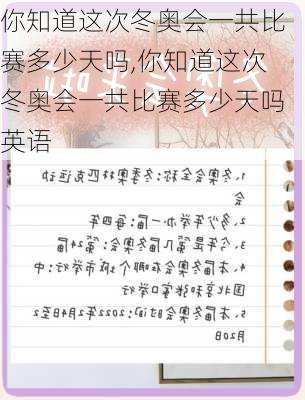 你知道这次冬奥会一共比
赛多少天吗,你知道这次
冬奥会一共比赛多少天吗
英语
1、冬奥会全称:冬季奥林匹克运动
会
2、多少年举办一届:每四年
3、今年是第几届冬奥会:第24届
4、本届冬奥会在哪个城市举行:中
国北京和张家口举行
5、本届冬奥会时间:2022年2月4日至2
月20日